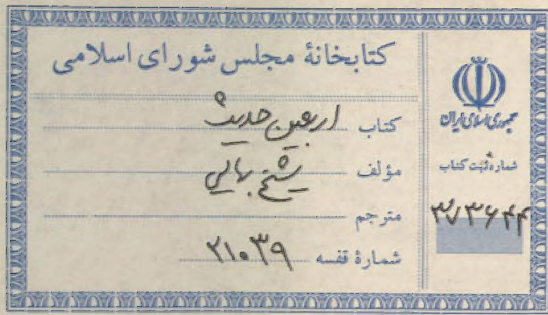 کتابخانهٔ مجلس شورای اسلامی
کتاب اربعین حدیث
مؤلف شیخ بهایی
مترجم
شمارهٔ قفسه ۲۱۰۳۹
جمهوری اسلامی ایران
شماره ثبت کتاب